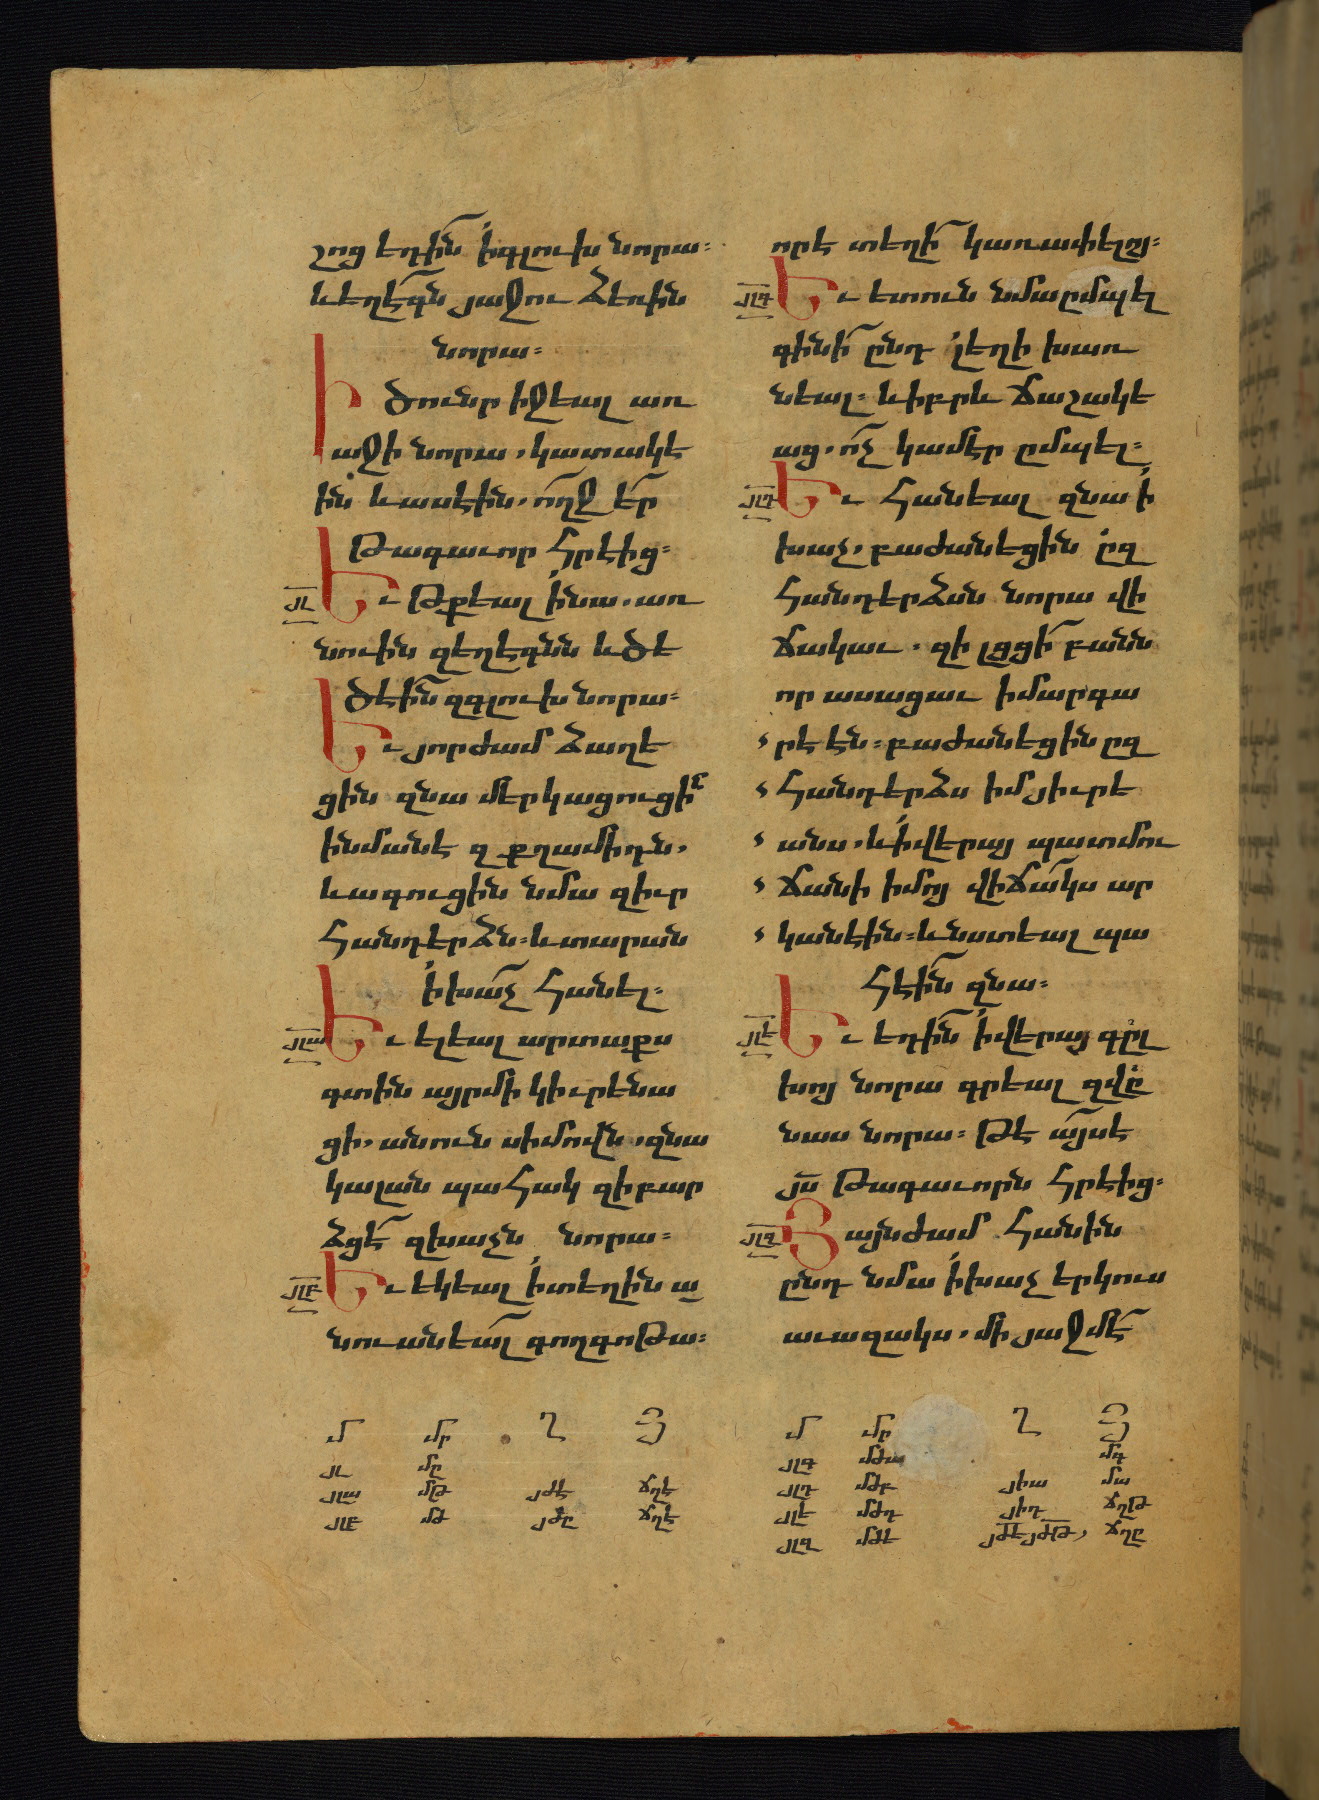 շոց եդին՝ ի գլուխ նորա։
և եղէգն յաջու ձեռին
նորա։
Ի ծունր իջեալ առ
աջի նորա, կատակէ
ին և ասէին. ո՜ղջ ե՛ր
թագաւոր հրէից։
ՅԼ
Եւ թքեալ ի նա. առ
նուին զեղէգնն և ծե
ծէին զգլուխ նորա։
Եւ յորժամ ձաղե
ցին զնա մերկացուցի՛ն
ի նմանէ զքղամիդն,
և ագուցին նմա զիւր
հանդերձն։ և տարան
ի խա՛չ հանել։
ՅԼԱ
Եւ ելեալ արտաքս
գտին այր մի կիւրենա
ցի. անուն սիմովն. զնա
կալան պահակ զի բար
ձցէ՛ զխաչն նորա։
ՅԼԲ
Եւ եկեալ ի տեղին ա
նուանեա՛լ գողգոթա։
որ է տեղի՛ կառափելոյ։
ՅԼԳ
Եւ ետուն նմա ըմպել
գինի՛ ընդ լեղի խառ
նեալ։ և իբրև ճաշակե
աց. ո՛չ կամէր ըմպել։
ՅԼԴ
Եւ հանեալ զնա ի
խաչ. բաժանեցին ըզ
հանդերձսն նորա վի
ճակաւ. զի լցցի՛ բանն
որ ասացաւ ի մարգա
րէ էն։ բաժանեցին ըզ
հանդերձս իմ յիւրե
անս. և ի վերայ պատմու
ճանի իմոյ վիճակս ար
կանէին։ և նստեալ պա
հէին զնա։
ՅԼԵ
Եւ եդին՝ ի վերայ գըլ
խոյ նորա գրեալ զվը
նաս նորա։ թէ այսէ
յս թագաւորն հրէից։
ՅԼԶ
Յայնժամ հանին
ընդ նմա ի խաչ երկուս
աւազակս. մի յաջմէ՛
մ մր ղ յ
յլ մը
յլա մթ յժէ ճղէ
յլբ մժ յժը ճղէ
մ մր ղ յ
յլգ մժա մգ
յլդ մժբ յիա մա
յլե մժդ յիդ ճղթ
յլզ մժե յժե յժթ, ճղը